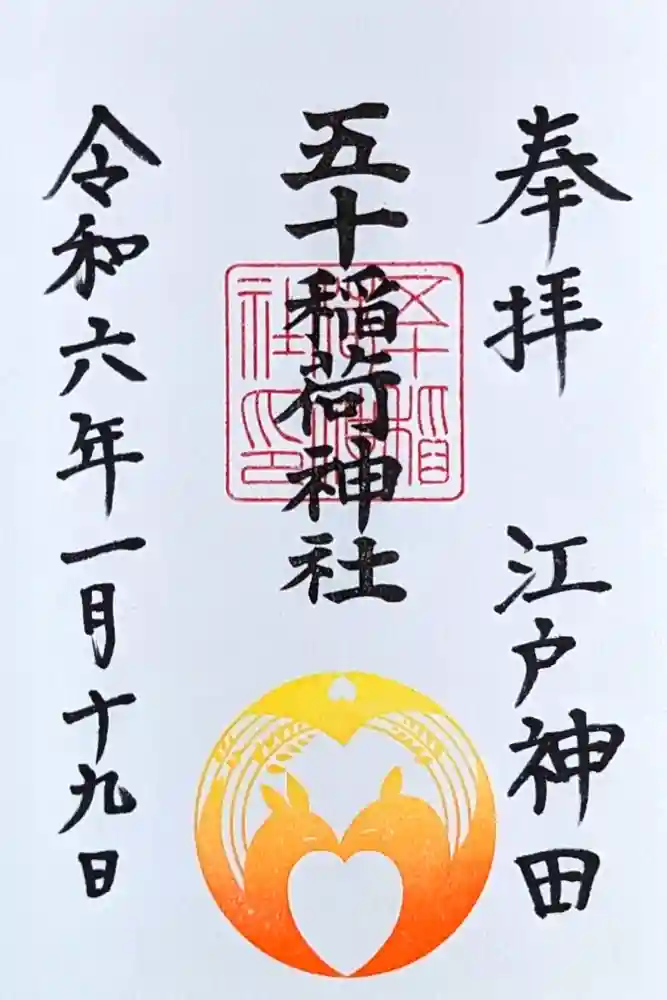 奉拝　江戸神田
五十稲荷神社
五十稲
荷神
社印
令和六年一月十九日